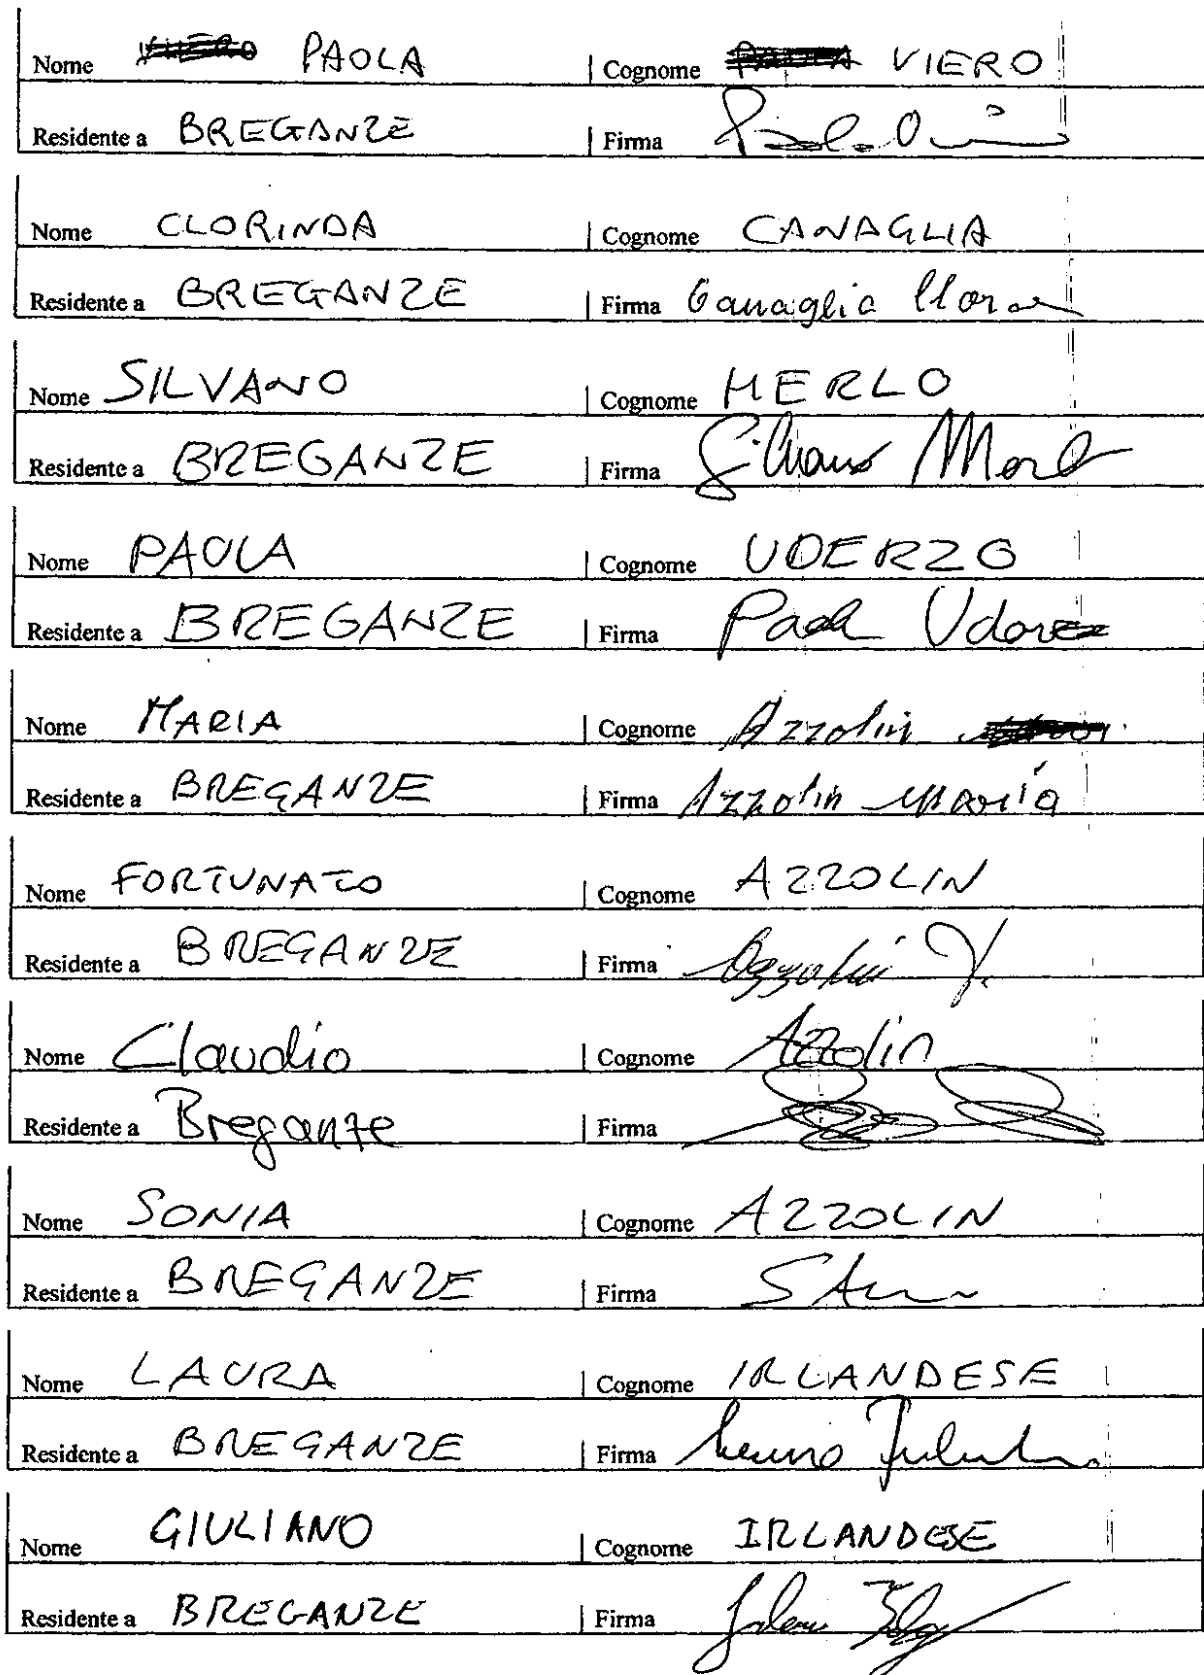 Nome PAOLA | Cognome VIERO
Residente a BREGANZE | Firma
Nome CLORINDA | Cognome CANAGLIA
Residente a BREGANZE | Firma Canaglia Clor
Nome SILVANO | Cognome MERLO
Residente a BREGANZE | Firma Silvano Merlo
Nome PAOLA | Cognome UDERZO
Residente a BREGANZE | Firma Paola Uderzo
Nome MARIA | Cognome Azzolin
Residente a BREGANZE | Firma Azzolin Maria
Nome FORTUNATO | Cognome AZZOLIN
Residente a BREGANZE | Firma Azzolin F.
Nome Claudio | Cognome Azzolin
Residente a Breganze | Firma
Nome SONIA | Cognome AZZOLIN
Residente a BREGANZE | Firma
Nome LAURA | Cognome IRLANDESE
Residente a BREGANZE | Firma
Nome GIULIANO | Cognome IRLANDESE
Residente a BREGANZE | Firma